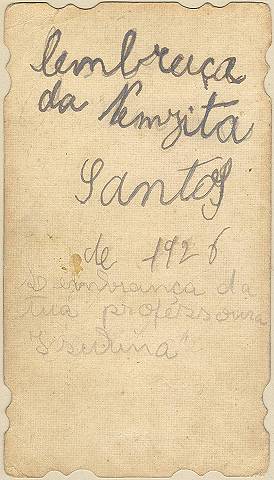 lembraça
da Nemzita
Santos
de 1926
Lembrança da
tua proféssoura